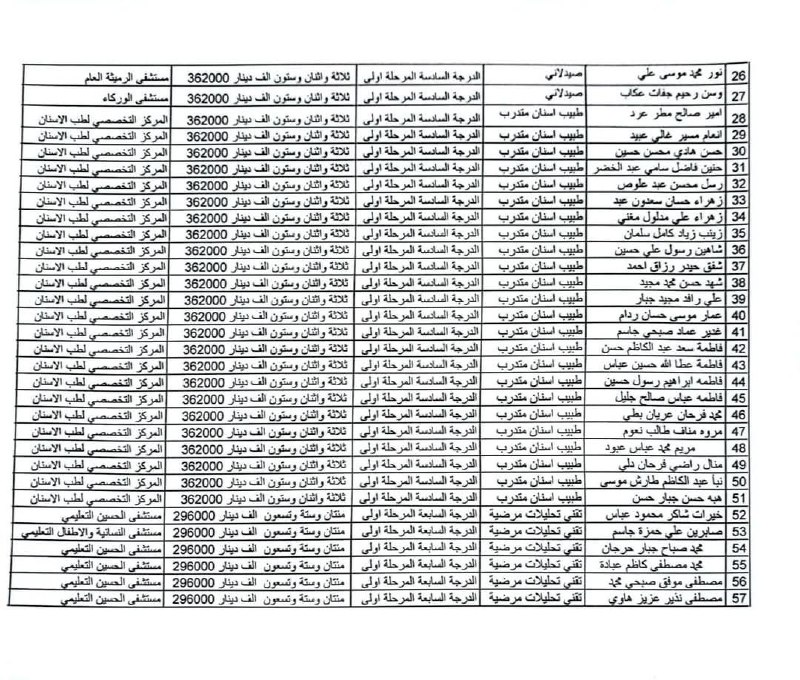 26 نور محمد موسى علي صيدلاني الدرجة السادسة المرحلة اولى ثلاثة واثنان وستون الف دينار 362000 مستشفى الرميثة العام
27 وسن رحيم جفات عكاب صيدلاني الدرجة السادسة المرحلة اولى ثلاثة واثنان وستون الف دينار 362000 مستشفى الوركاء
28 امير صالح مطر عرد طبيب اسنان متدرب الدرجة السادسة المرحلة اولى ثلاثة واثنان وستون الف دينار 362000 المركز التخصصي لطب الاسنان
29 انعام مسير غالي عبيد طبيب اسنان متدرب الدرجة السادسة المرحلة اولى ثلاثة واثنان وستون الف دينار 362000 المركز التخصصي لطب الاسنان
30 حسن هادي محسن حسين طبيب اسنان متدرب الدرجة السادسة المرحلة اولى ثلاثة واثنان وستون الف دينار 362000 المركز التخصصي لطب الاسنان
31 حنين فاضل سامي عبد الخضر طبيب اسنان متدرب الدرجة السادسة المرحلة اولى ثلاثة واثنان وستون الف دينار 362000 المركز التخصصي لطب الاسنان
32 رسل محسن عبد علوص طبيب اسنان متدرب الدرجة السادسة المرحلة اولى ثلاثة واثنان وستون الف دينار 362000 المركز التخصصي لطب الاسنان
33 زهراء حسان سعدون عبد طبيب اسنان متدرب الدرجة السادسة المرحلة اولى ثلاثة واثنان وستون الف دينار 362000 المركز التخصصي لطب الاسنان
34 زهراء علي مدلول مغني طبيب اسنان متدرب الدرجة السادسة المرحلة اولى ثلاثة واثنان وستون الف دينار 362000 المركز التخصصي لطب الاسنان
35 زينب زياد كامل سلمان طبيب اسنان متدرب الدرجة السادسة المرحلة اولى ثلاثة واثنان وستون الف دينار 362000 المركز التخصصي لطب الاسنان
36 شاهين رسول علي حسين طبيب اسنان متدرب الدرجة السادسة المرحلة اولى ثلاثة واثنان وستون الف دينار 362000 المركز التخصصي لطب الاسنان
37 شفق حيدر رزاق احمد طبيب اسنان متدرب الدرجة السادسة المرحلة اولى ثلاثة واثنان وستون الف دينار 362000 المركز التخصصي لطب الاسنان
38 شهد حسن محمد مجيد طبيب اسنان متدرب الدرجة السادسة المرحلة اولى ثلاثة واثنان وستون الف دينار 362000 المركز التخصصي لطب الاسنان
39 علي رافد مجيد جبار طبيب اسنان متدرب الدرجة السادسة المرحلة اولى ثلاثة واثنان وستون الف دينار 362000 المركز التخصصي لطب الاسنان
40 عمار موسى حسان ردام طبيب اسنان متدرب الدرجة السادسة المرحلة اولى ثلاثة واثنان وستون الف دينار 362000 المركز التخصصي لطب الاسنان
41 غدير عماد صبحي جاسم طبيب اسنان متدرب الدرجة السادسة المرحلة اولى ثلاثة واثنان وستون الف دينار 362000 المركز التخصصي لطب الاسنان
42 فاطمة سعد عبد الكاظم حسن طبيب اسنان متدرب الدرجة السادسة المرحلة اولى ثلاثة واثنان وستون الف دينار 362000 المركز التخصصي لطب الاسنان
43 فاطمة عطا الله حسين عباس طبيب اسنان متدرب الدرجة السادسة المرحلة اولى ثلاثة واثنان وستون الف دينار 362000 المركز التخصصي لطب الاسنان
44 فاطمه ابراهيم رسول حسين طبيب اسنان متدرب الدرجة السادسة المرحلة اولى ثلاثة واثنان وستون الف دينار 362000 المركز التخصصي لطب الاسنان
45 فاطمه عباس صالح جليل طبيب اسنان متدرب الدرجة السادسة المرحلة اولى ثلاثة واثنان وستون الف دينار 362000 المركز التخصصي لطب الاسنان
46 محمد فرحان عريان بطي طبيب اسنان متدرب الدرجة السادسة المرحلة اولى ثلاثة واثنان وستون الف دينار 362000 المركز التخصصي لطب الاسنان
47 مروه مناف طالب نعوم طبيب اسنان متدرب الدرجة السادسة المرحلة اولى ثلاثة واثنان وستون الف دينار 362000 المركز التخصصي لطب الاسنان
48 مريم محمد عباس عبود طبيب اسنان متدرب الدرجة السادسة المرحلة اولى ثلاثة واثنان وستون الف دينار 362000 المركز التخصصي لطب الاسنان
49 منال راضي فرحان دلي طبيب اسنان متدرب الدرجة السادسة المرحلة اولى ثلاثة واثنان وستون الف دينار 362000 المركز التخصصي لطب الاسنان
50 نبا عبد الكاظم طارش موسى طبيب اسنان متدرب الدرجة السادسة المرحلة اولى ثلاثة واثنان وستون الف دينار 362000 المركز التخصصي لطب الاسنان
51 هبه حسن جبار حسن طبيب اسنان متدرب الدرجة السادسة المرحلة اولى ثلاثة واثنان وستون الف دينار 362000 المركز التخصصي لطب الاسنان
52 خيرات شاكر محمود عباس تقني تحليلات مرضية الدرجة السابعة المرحلة اولى مئتان وستة وتسعون الف دينار 296000 مستشفى الحسين التعليمي
53 صابرين علي حمزة جاسم تقني تحليلات مرضية الدرجة السابعة المرحلة اولى مئتان وستة وتسعون الف دينار 296000 مستشفى النسائية والاطفال التعليمي
54 محمد صباح جبار حرجان تقني تحليلات مرضية الدرجة السابعة المرحلة اولى مئتان وستة وتسعون الف دينار 296000 مستشفى الحسين التعليمي
55 محمد مصطفى كاظم عبادة تقني تحليلات مرضية الدرجة السابعة المرحلة اولى مئتان وستة وتسعون الف دينار 296000 مستشفى الحسين التعليمي
56 مصطفى موفق صبحي محمد تقني تحليلات مرضية الدرجة السابعة المرحلة اولى مئتان وستة وتسعون الف دينار 296000 مستشفى الحسين التعليمي
57 مصطفى نذير عزيز هاوي تقني تحليلات مرضية الدرجة السابعة المرحلة اولى مئتان وستة وتسعون الف دينار 296000 مستشفى الحسين التعليمي